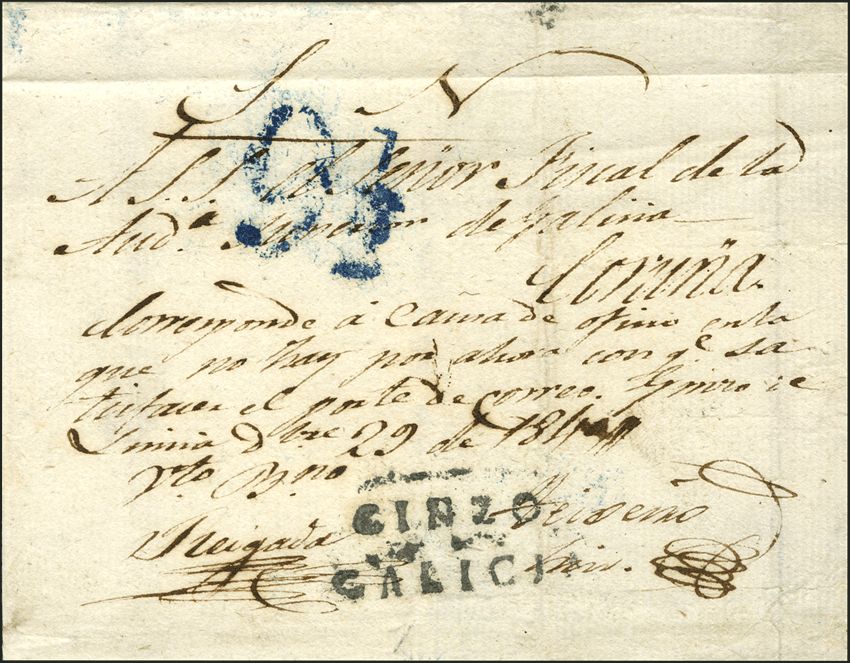 S. N.
A S. S. al Señor Fiscal de la
Aud.ª de Galicia
Coruña.
Corresponde á causa de oficio en la
que no hay por ahora con q.e sa
tisfacer el porte de correo. Ginzo de
Limia Dbre 29 de
Vto Bno
Reigada
CINZO
GALICI